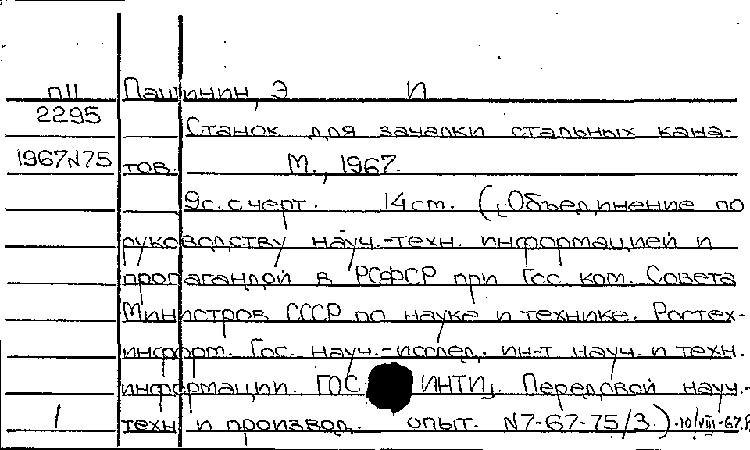 П11 Пашинин, Э И
2295 Станок для зачалки стальных кана-
1967N75 тов. М., 1967.
9с. с черт. 14 см. (Объединение по
руководству науч.-техн. информацией и
пропагандой в РСФСР при Гос. ком. Совета
Министров СССР по науке и технике. Ростех-
информ. Гос. науч.-исслед. ин-т науч. и техн.
информации. ГОС ИНТИ. Передовой науч.-
1 техн. и производ. опыт. N7-67-75/3.) 10/VIII-67г.